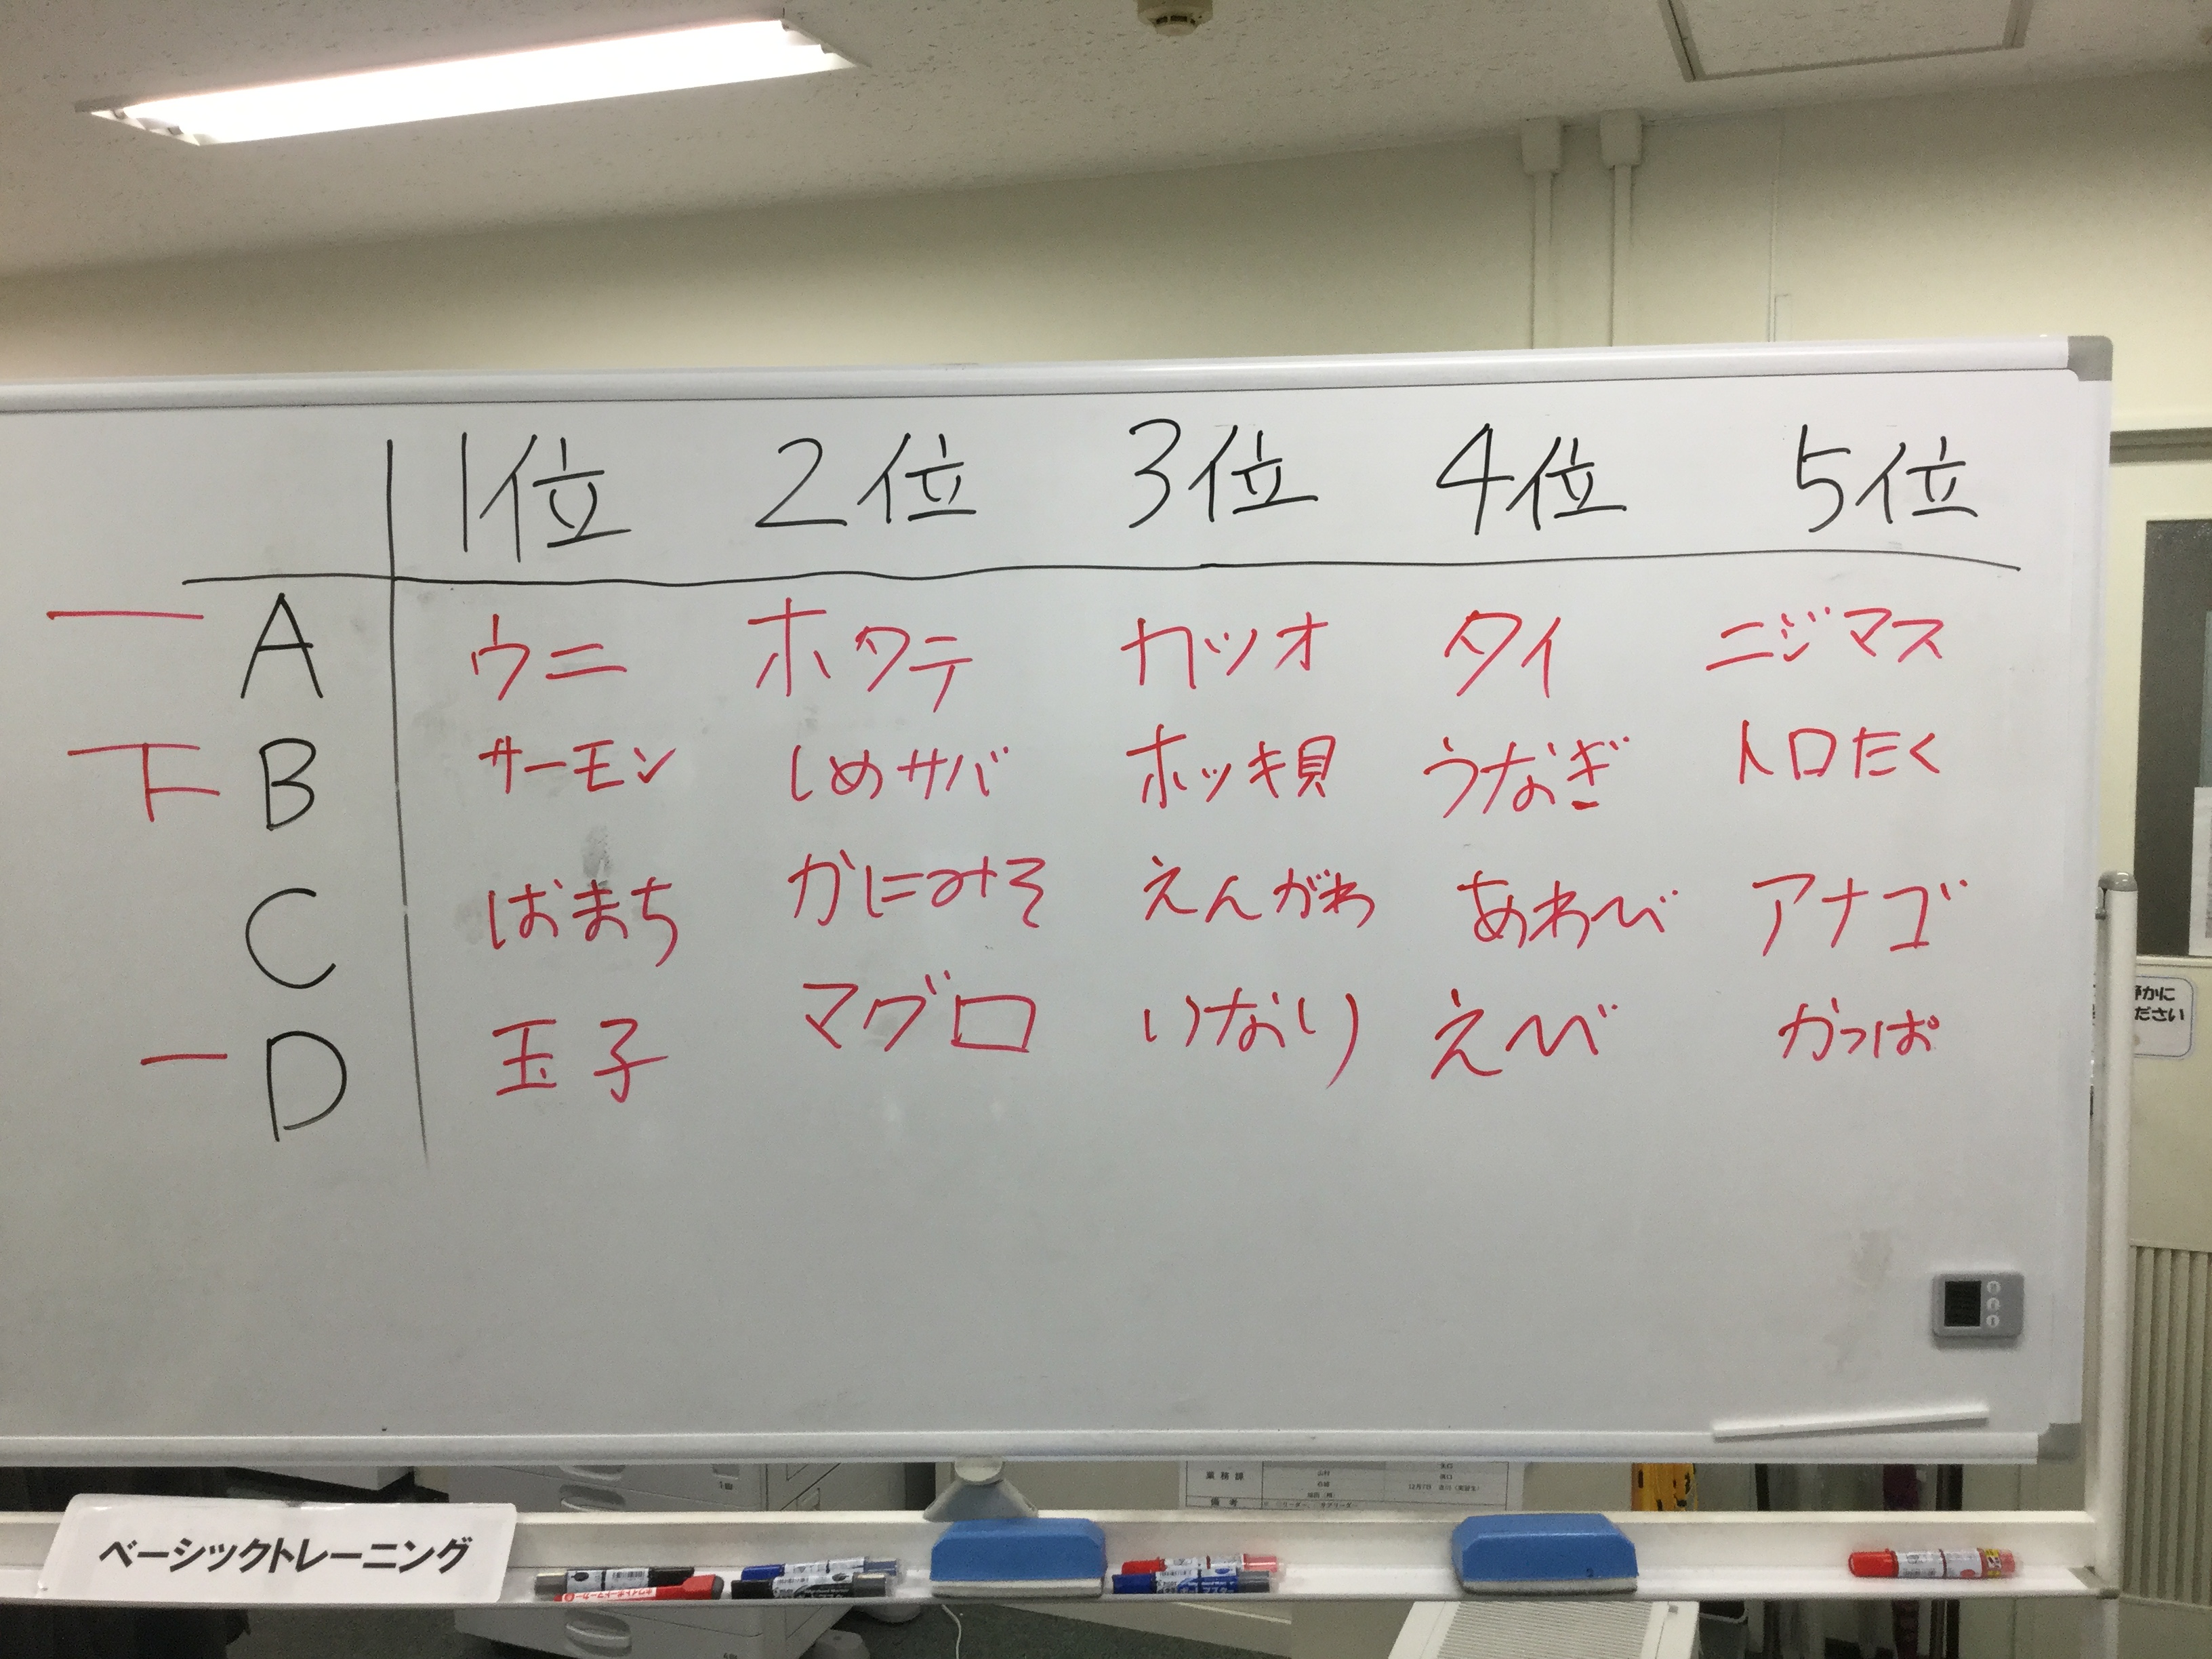 1位 2位 3位 4位 5位
一 A ウニ ホタテ カツオ タイ ニジマス
下 B サーモン しめサバ ホッキ貝 うなぎ トロたく
C はまち かにみそ えんがわ あわび アナゴ
一 D 玉子 マグロ いなり えび かっぱ
静かに
ださい
業務課
備考
ベーシックトレーニング